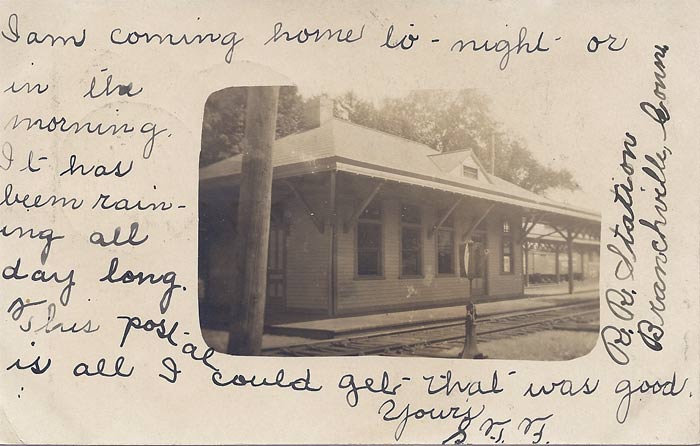 I am coming home to-night or
in the
morning.
It has
been rain-
ing all
day long.
This postal
is all I could get that was good.
Yours
S. T. F.
R. R. Station
Branchville, Conn.